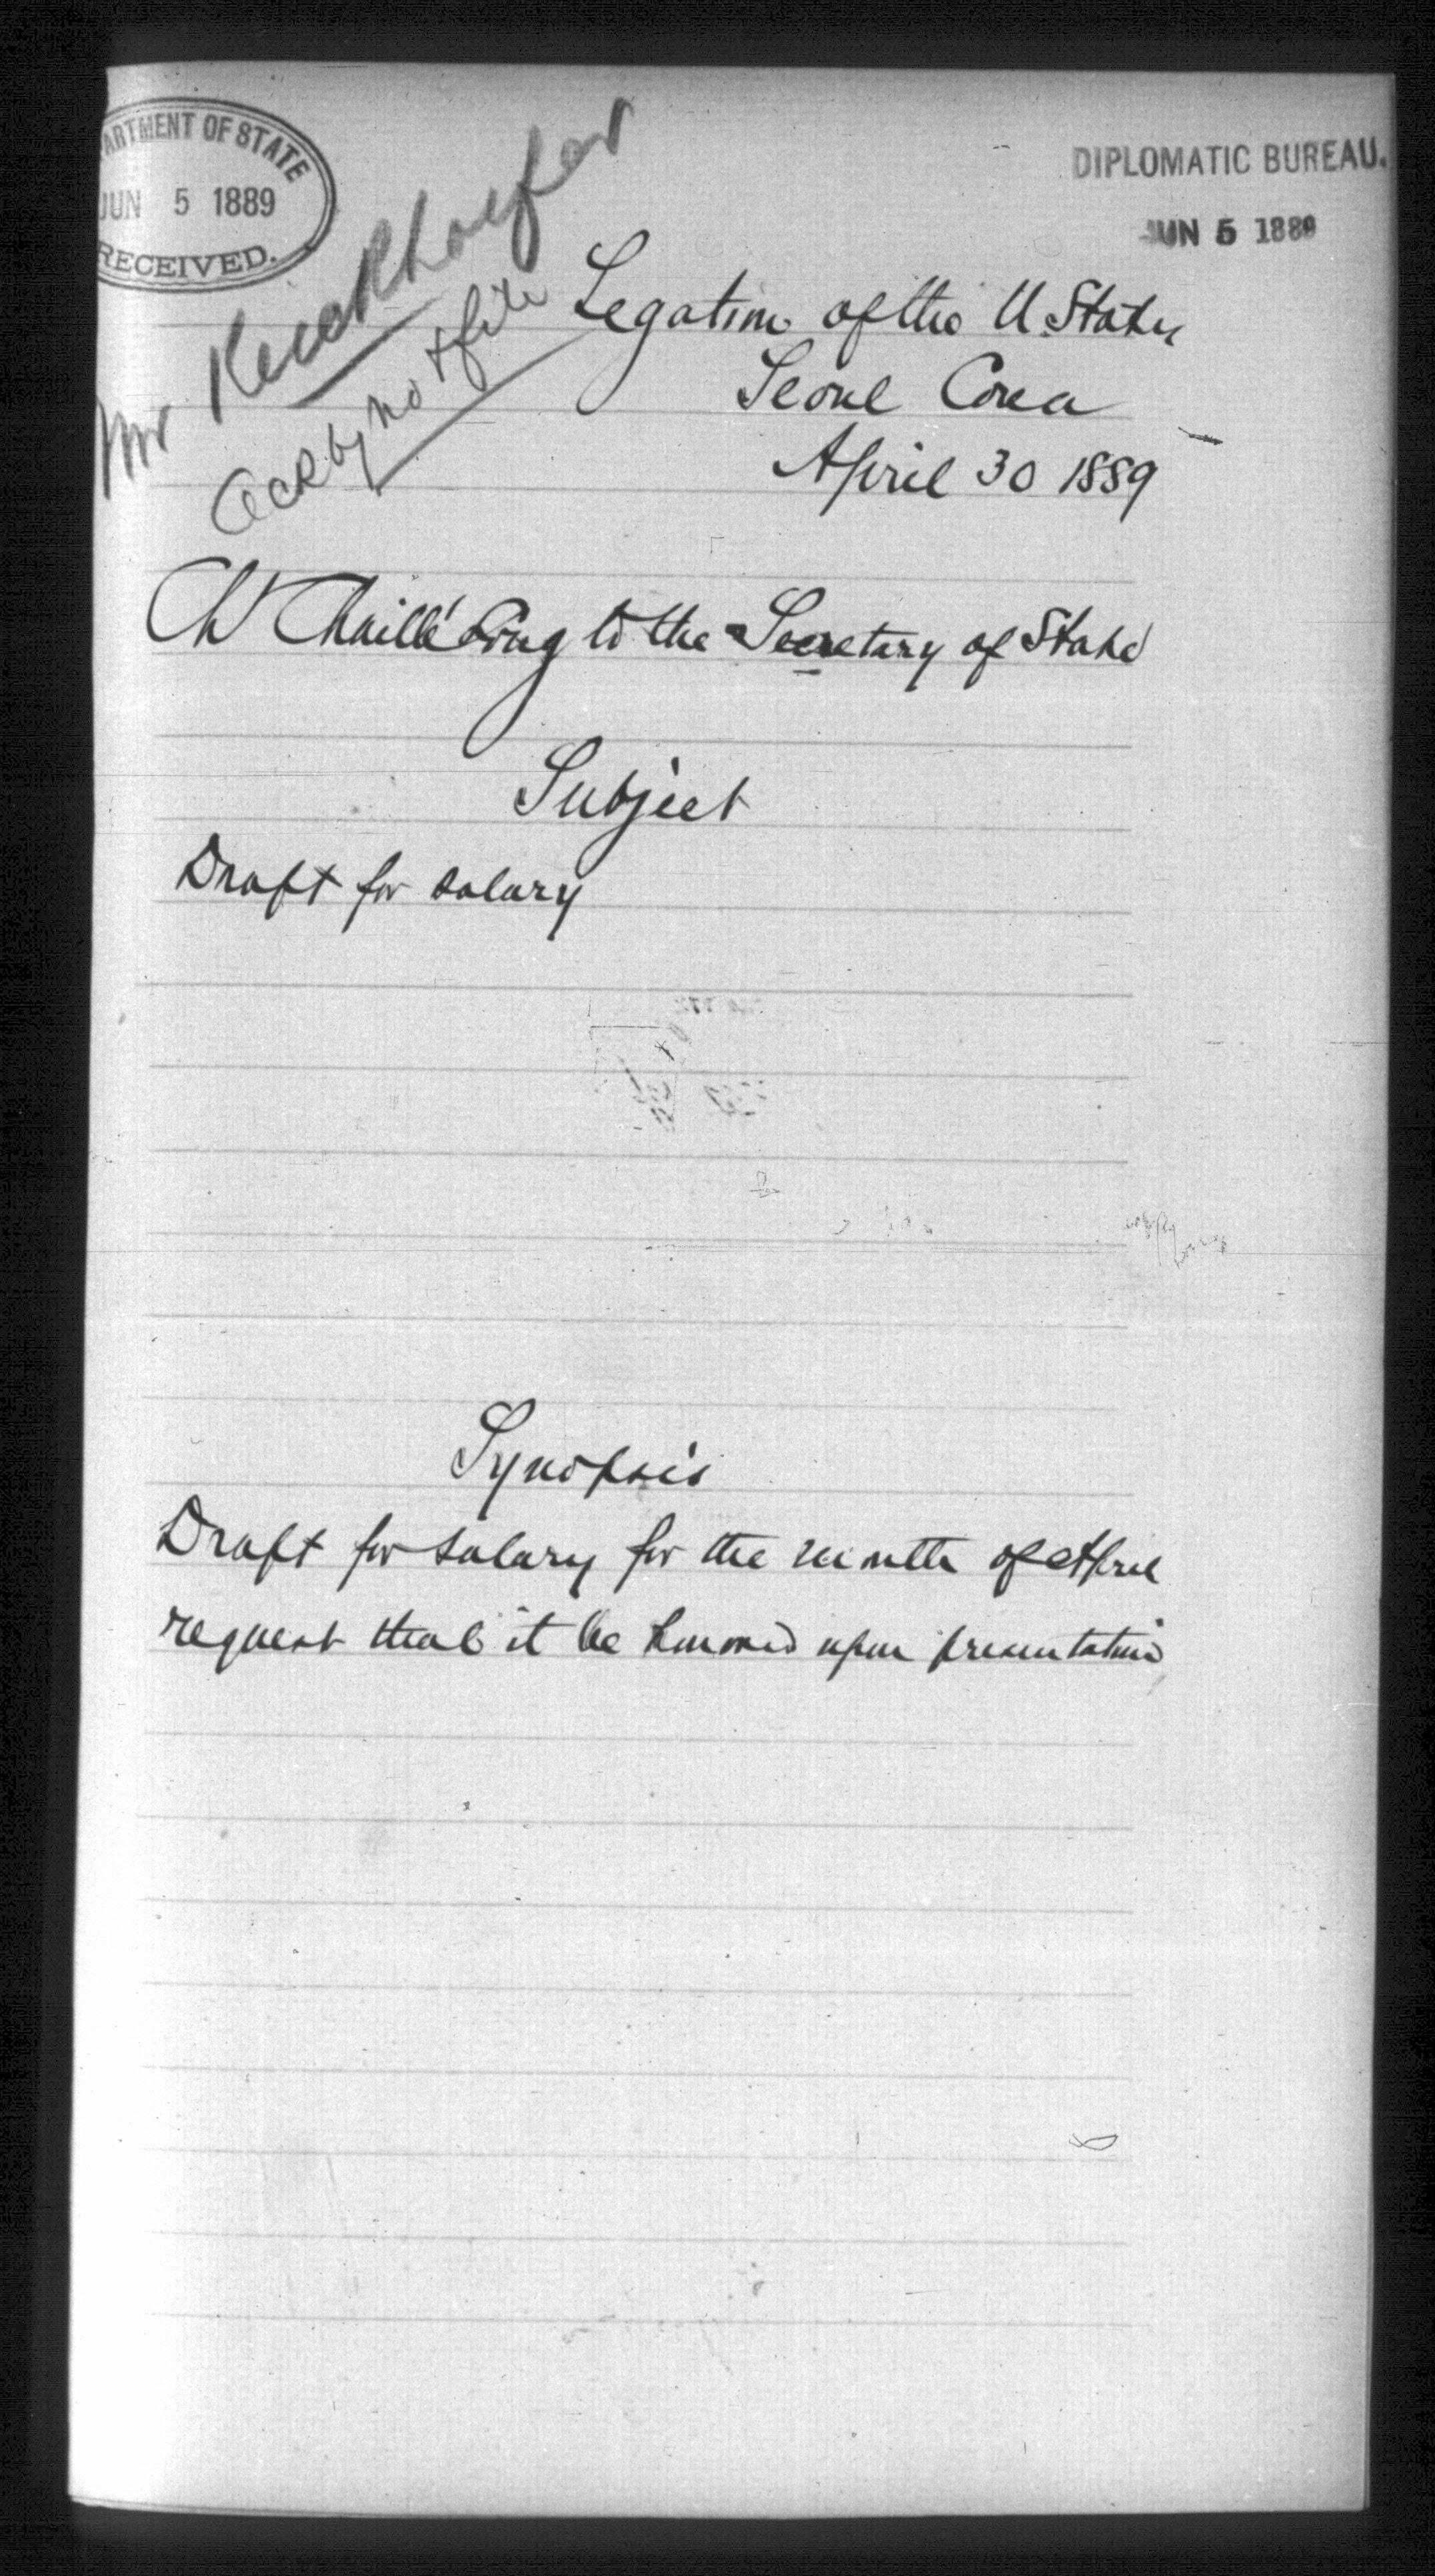 ARTMENT OF STATE
JUN 5 1889
RECEIVED.
DIPLOMATIC BUREAU.
JUN 5 1889
Mr Kieckhoefer
Ack by no & file
Legation of the U. States
Seoul Corea
April 30 1889
Ch Chaillé Long to the Secretary of State
Subject
Draft for salary
Synopsis
Draft for salary for the month of April
request that it be honored upon presentation